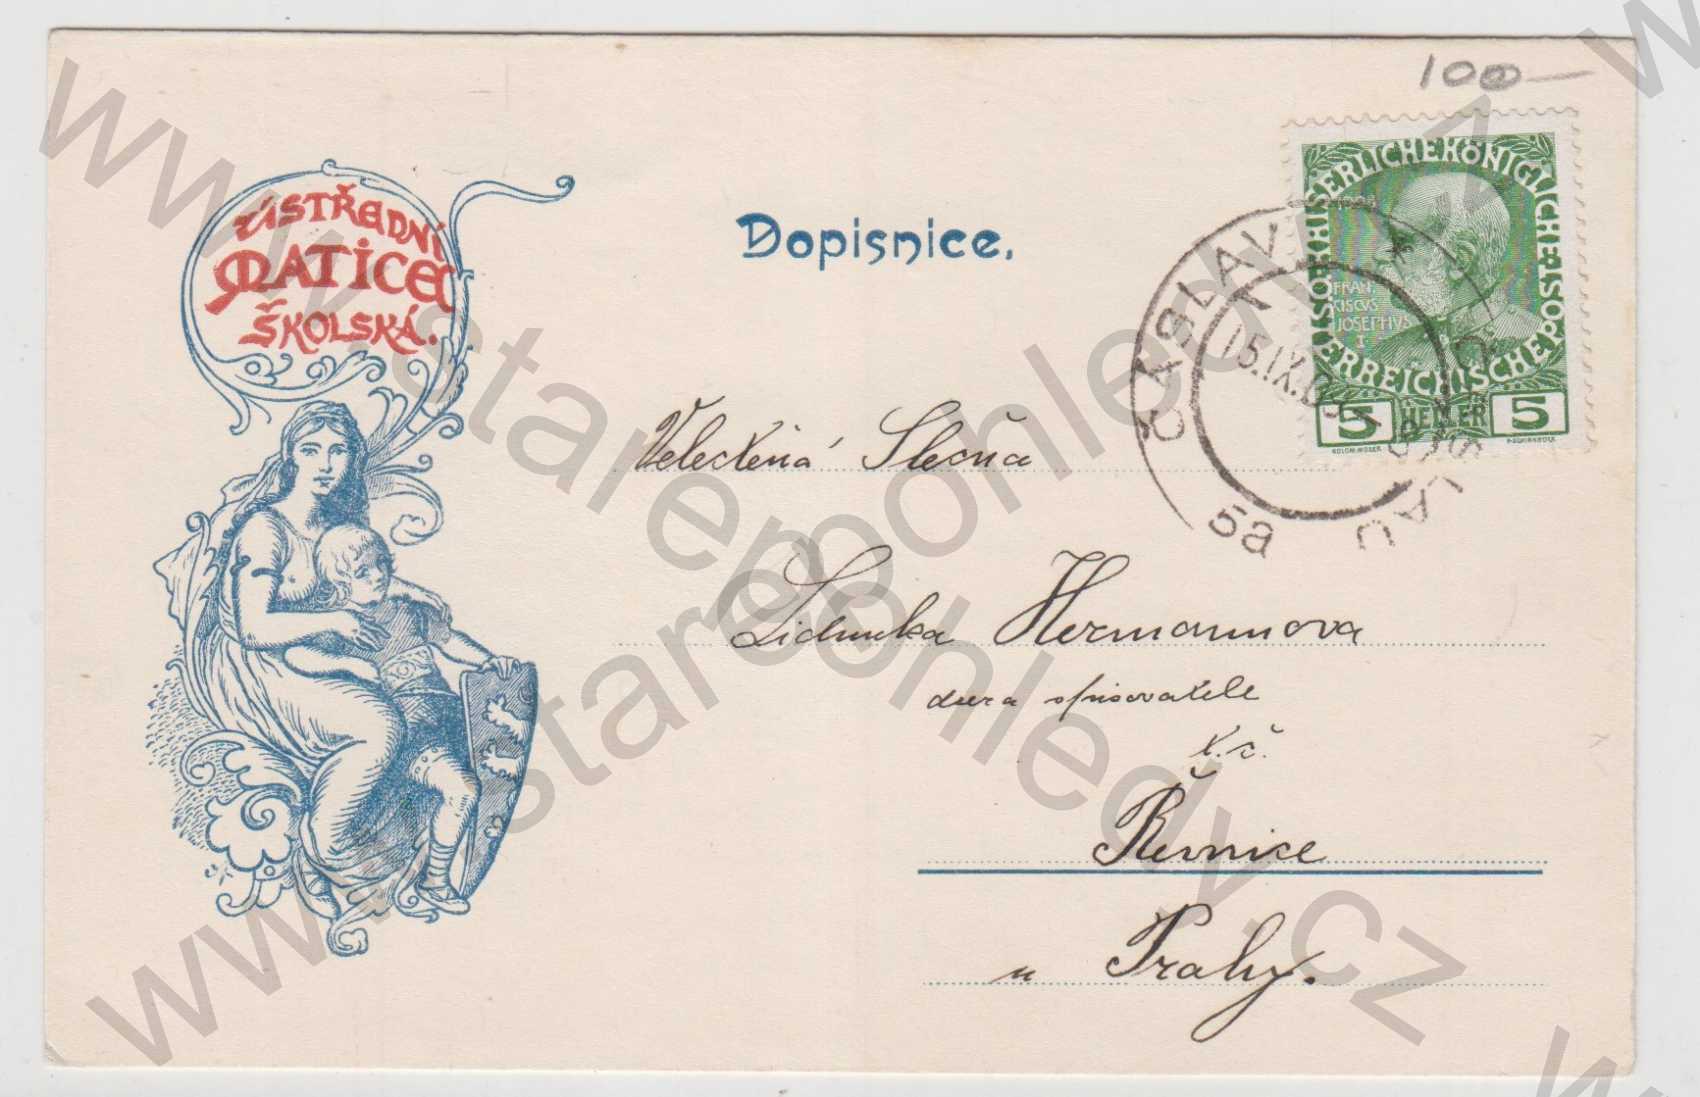 1000—
ÚSTŘEDNÍ
MATICE
ŠKOLSKÁ.
Dopisnice.
KAISERLICHEKÖNIGLICHE
ÖSTERREICHISCHE POST
1908
FRAN
CISCVS
JOSEPHVS
I
5 HELLER 5
KOLOM.MOSER
F.SCHIRNBÖCK
ČÁSLAV
15.IX.09
ČASLAU
5a
Velectěná Slečna
Lidunka Hermannova
dcera spisovatele
t.č.
Řevnice
u Prahy.
www.staropohledy.cz
www.staropohledy.cz